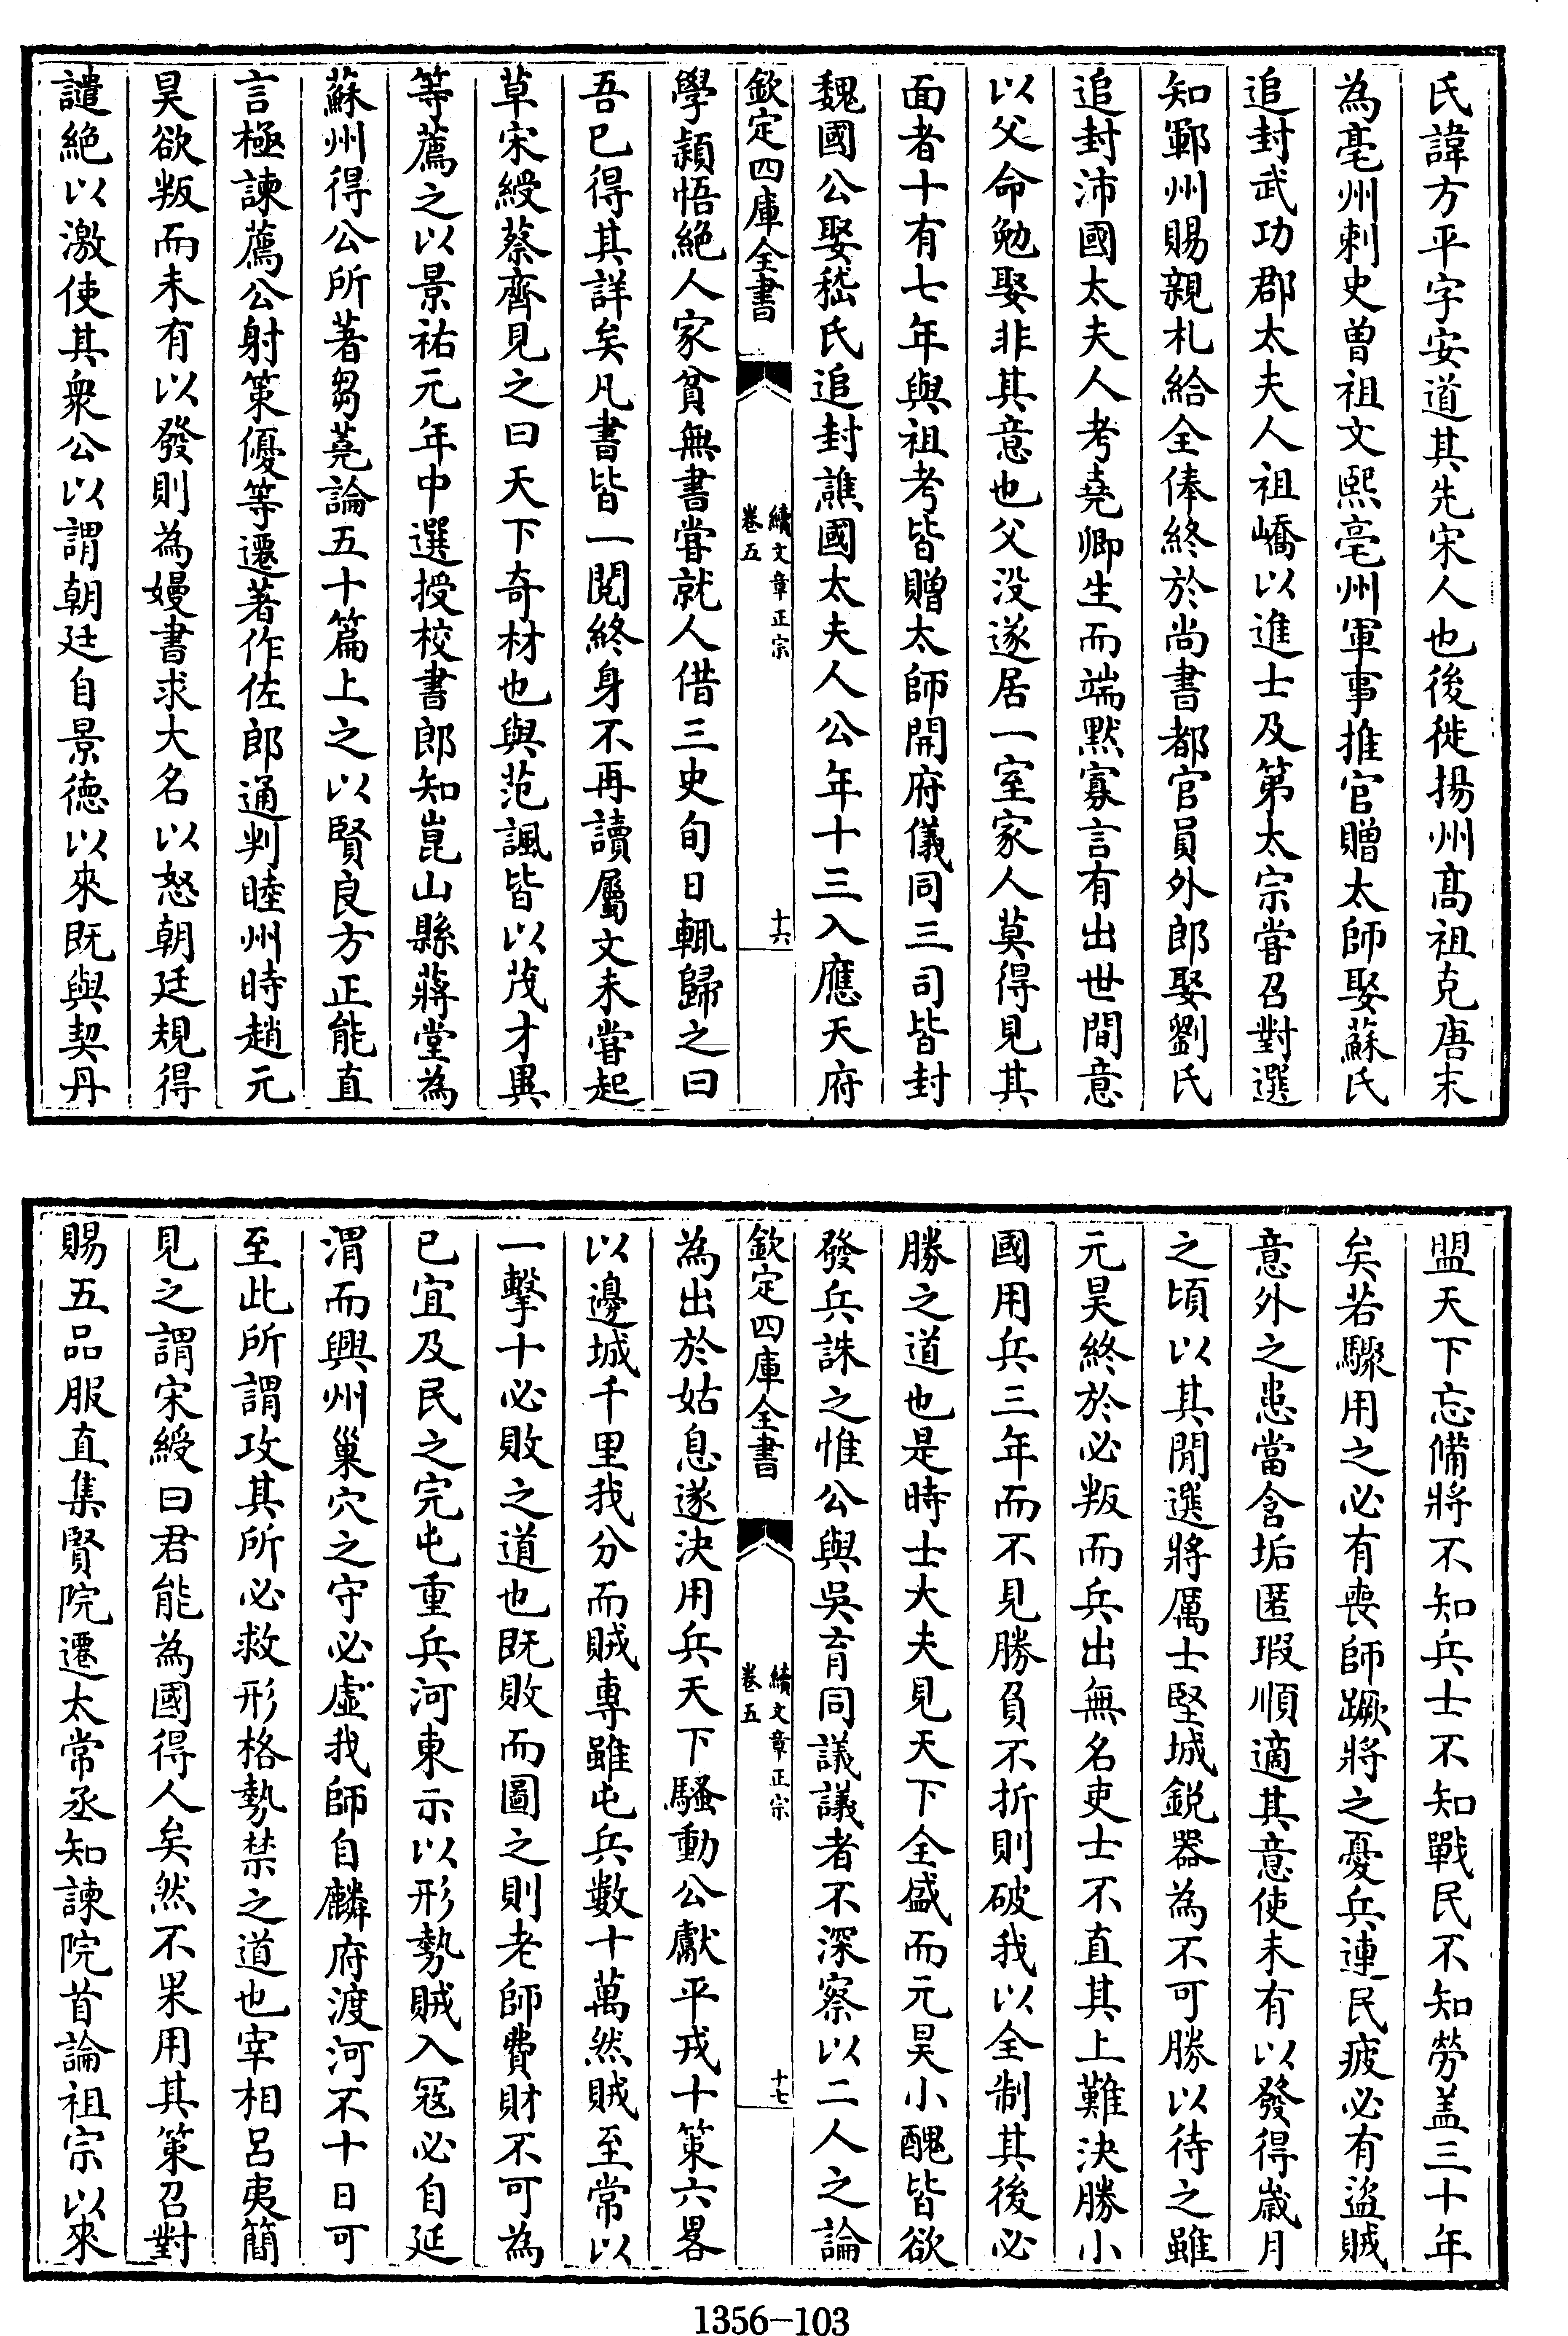 氏諱方平字安道其先宋人也後徙揚州髙祖克唐末
為亳州刺史曽祖文熙亳州軍事推官贈太師娶蘇氏
追封武功郡太夫人祖嶠以進士及第太宗嘗召對選
知鄆州賜親札給全俸終於尚書都官員外郎娶劉氏
追封沛國太夫人考堯卿生而端黙寡言有出世間意
以父命勉娶非其意也父没遂居一室家人莫得見其
面者十有七年與祖考皆贈太師開府儀同三司皆封
魏國公娶嵇氏追封譙國太夫人公年十三入應天府
欽定四庫全書
續文章正宗
卷五
十六
學頴悟絶人家貧無書嘗就人借三史旬日輒歸之曰
吾已得其詳矣凡書皆一閲終身不再讀屬文未嘗起
草宋綬蔡齊見之曰天下奇材也與范諷皆以茂才異
等薦之以景祐元年中選授校書郎知崑山縣蔣堂為
蘇州得公所著芻蕘論五十篇上之以賢良方正能直
言極諫薦公射策優等遷著作佐郎通判睦州時趙元
昊欲叛而未有以發則為嫚書求大名以怒朝廷規得
譴絶以激使其衆公以謂朝廷自景徳以來既與契丹
盟天下忘備將不知兵士不知戰民不知勞盖三十年
矣若驟用之必有喪師蹶將之憂兵連民疲必有盜賊
意外之患當含垢匿瑕順適其意使未有以發得嵗月
之頃以其間選將厲士堅城鋭器為不可勝以待之雖
元昊終於必叛而兵出無名吏士不直其上難決勝小
國用兵三年而不見勝負不折則破我以全制其後必
勝之道也是時士大夫見天下全盛而元昊小醜皆欲
發兵誅之惟公與吳育同議議者不深察以二人之論
欽定四庫全書
續文章正宗
卷五
十七
為出於姑息遂決用兵天下騷動公獻平戎十策六畧
以邊城千里我分而賊專雖屯兵數十萬然賊至常以
一擊十必敗之道也既敗而圖之則老師費財不可為
已宜及民之完屯重兵河東示以形勢賊入冦必自延
渭而興州巢穴之守必虛我師自麟府渡河不十日可
至此所謂攻其所必救形格勢禁之道也宰相呂夷簡
見之謂宋綬曰君能為國得人矣然不果用其策召對
賜五品服直集賢院遷太常丞知諫院首論祖宗以來
1356-103